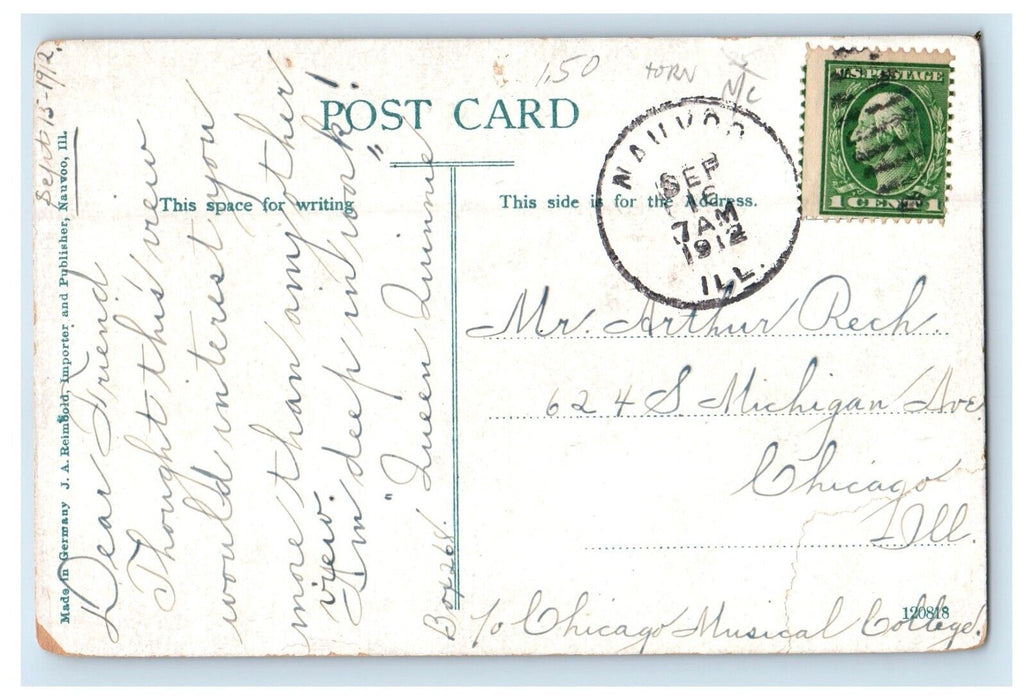 Sept 15-1912.
Made in Germany J. A. Reimbold, Importer and Publisher, Nauvoo, Ill.
Dear Friend
Thought this view
would interest you
more than any other
view.
I'm deep in work!
"Queen Quinine"
Box 268.
POST CARD
This space for writing
This side is for the Address.
1.50
TORN
NAUVOO
SEP
16
7AM
1912
ILL.
U.S. POSTAGE
1 CENT 1
Mr. Arthur Rech.
624 S Michigan Ave
Chicago
Ill.
120818
℅ Chicago Musical College.